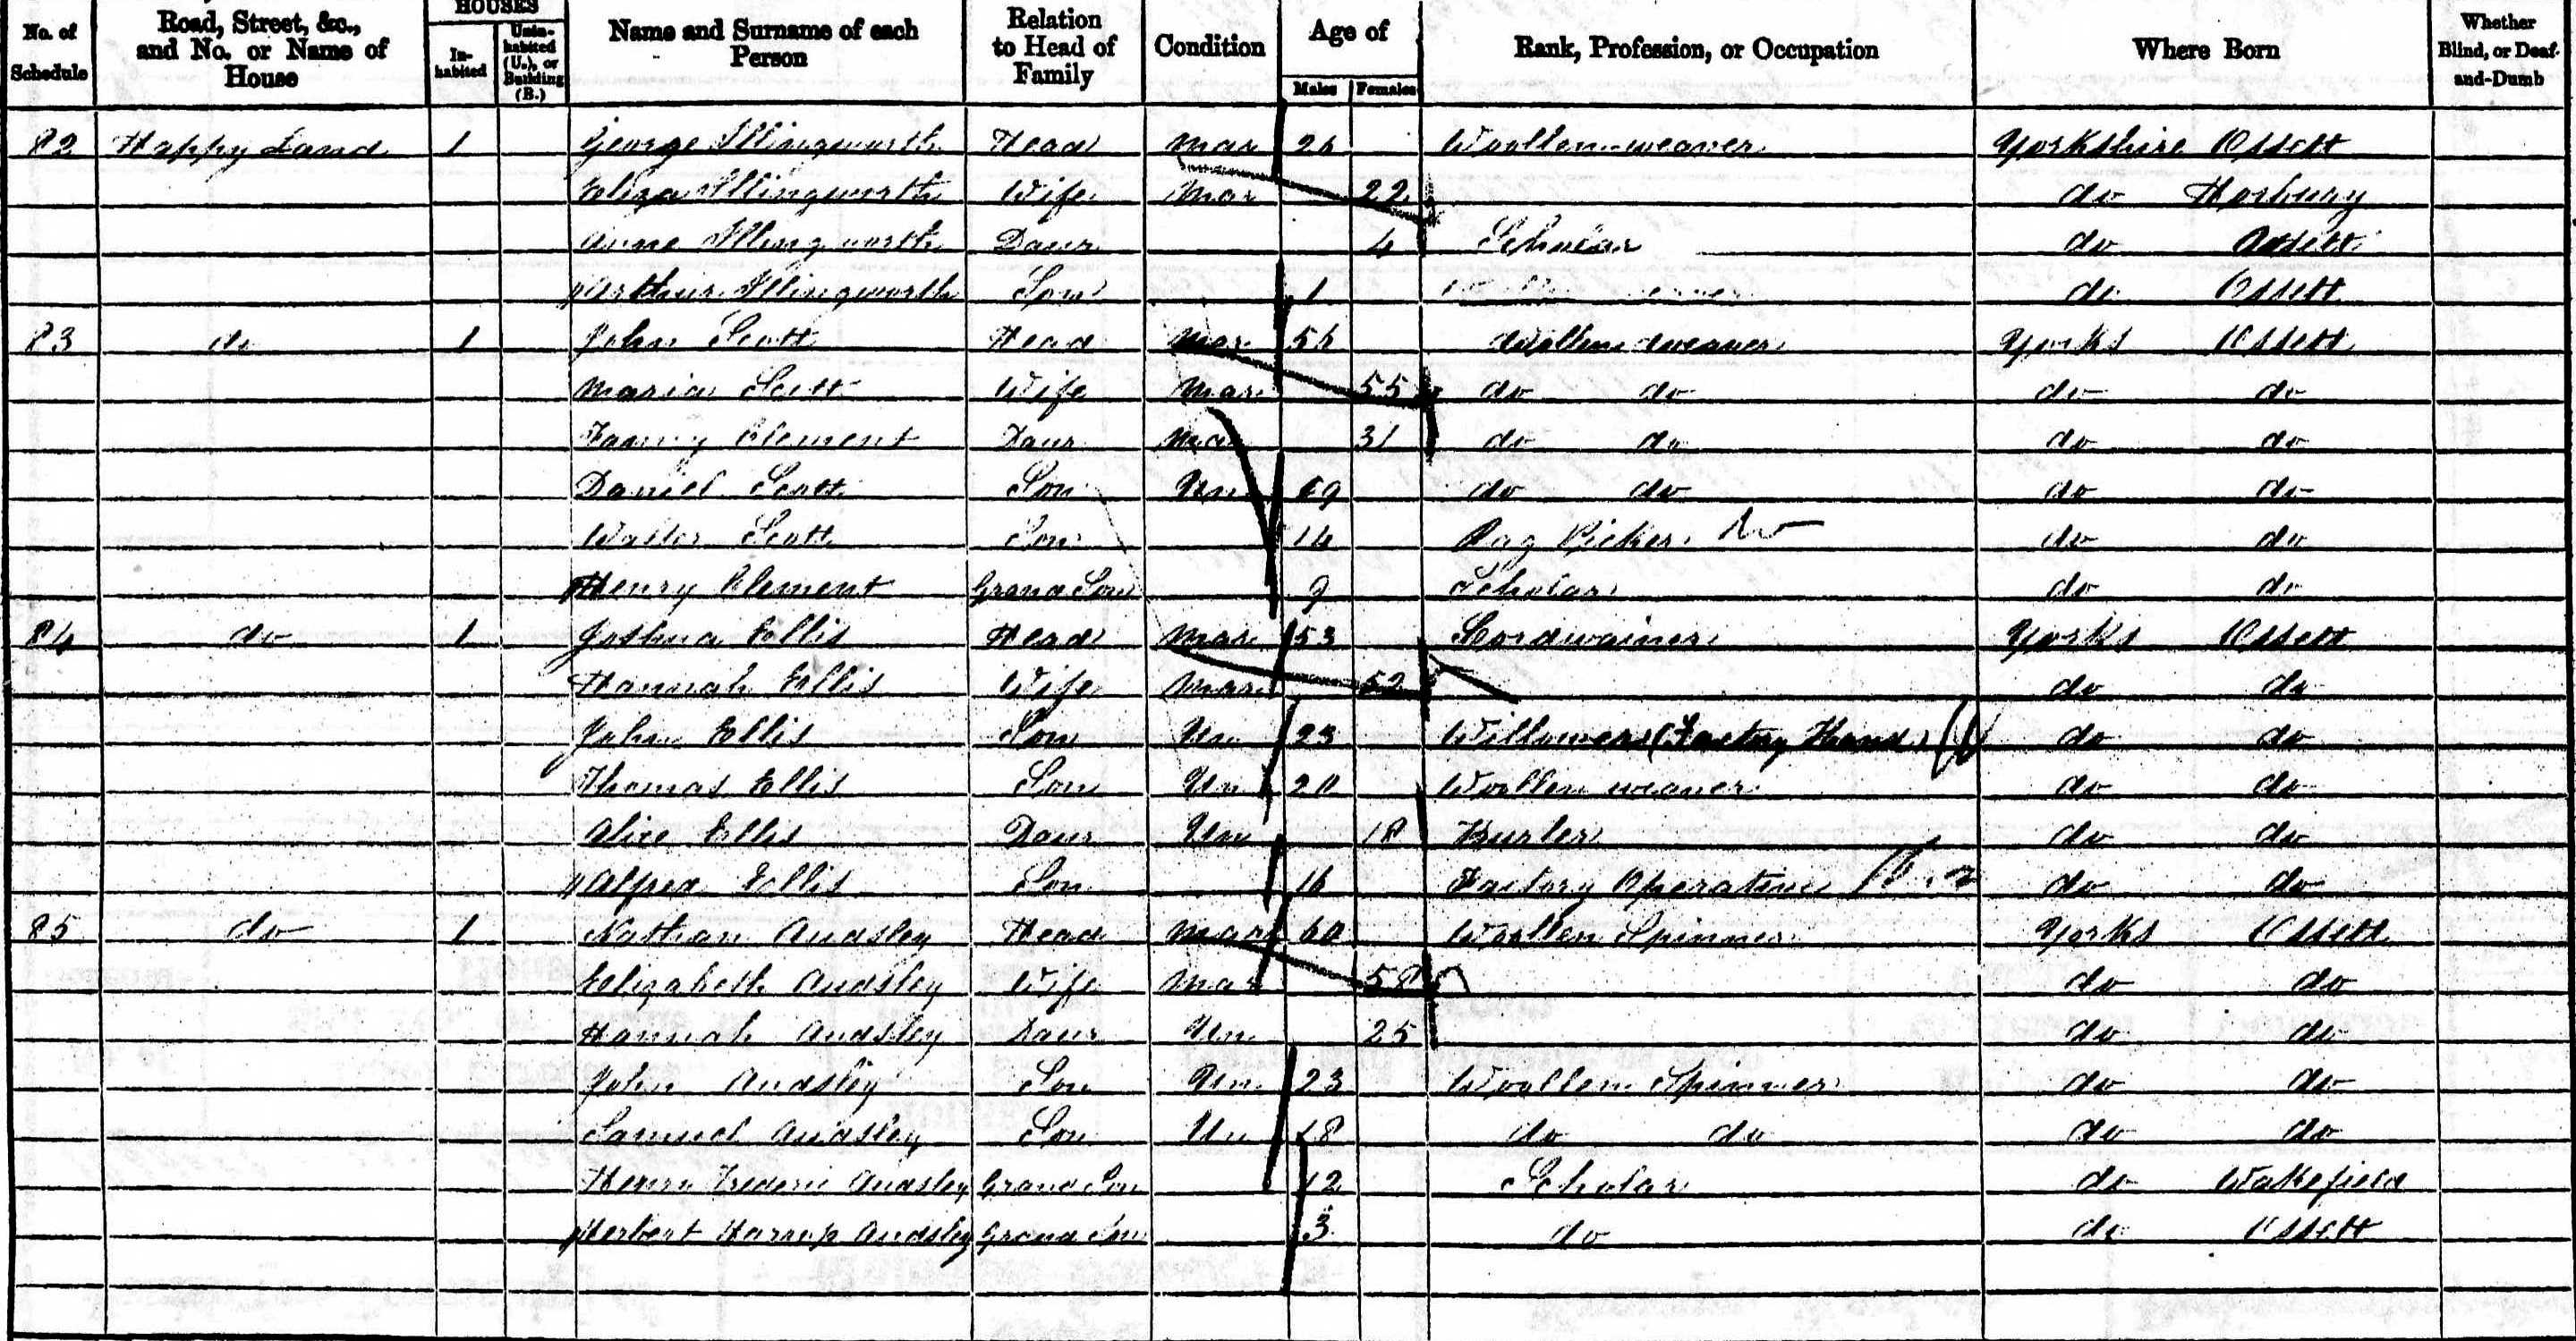 No. of Schedule | Road, Street, &c., and No. or Name of House | HOUSES In-habited | Unin-habited (U.), or Building (B.) | Name and Surname of each Person | Relation to Head of Family | Condition | Age of Males | Females | Rank, Profession, or Occupation | Where Born | Whether Blind, or Deaf-and-Dumb
82 Happy Land 1 George Illingworth Head Mar 26 Woollen weaver Yorkshire Ossett
Eliza Illingworth Wife Mar 22 do Horbury
Anne Illingworth Daur 4 Scholar do Ossett
Arthur Illingworth Son 1 do Ossett
83 do 1 John Scott Head Mar 56 Woollen weaver Yorks Ossett
Maria Scott Wife Mar 55 do do do do
Fanny Clement Daur Mar 31 do do do do
Daniel Scott Son Un 19 do do do do
Walter Scott Son 14 Rag Picker do do
Henry Clement Grand Son 9 Scholar do do
84 do 1 Joshua Ellis Head Mar 53 Cordwainer Yorks Ossett
Hannah Ellis Wife Mar 52 do do
John Ellis Son Un 23 Willower (Factory Hand) do do
Thomas Ellis Son Un 20 Woollen weaver do do
Alice Ellis Daur Un 18 Burler do do
Alfred Ellis Son 16 Factory Operative do do
85 do 1 Nathan Audsley Head Mar 60 Woollen Spinner Yorks Ossett
Elizabeth Audsley Wife Mar 58 do do
Hannah Audsley Daur Un 25 do do
John Audsley Son Un 23 Woollen Spinner do do
Samuel Audsley Son Un 18 do do do do
Henry Frederic Audsley Grand Son 12 Scholar do Wakefield
Herbert Harrop Audsley Grand Son 3 do do Ossett